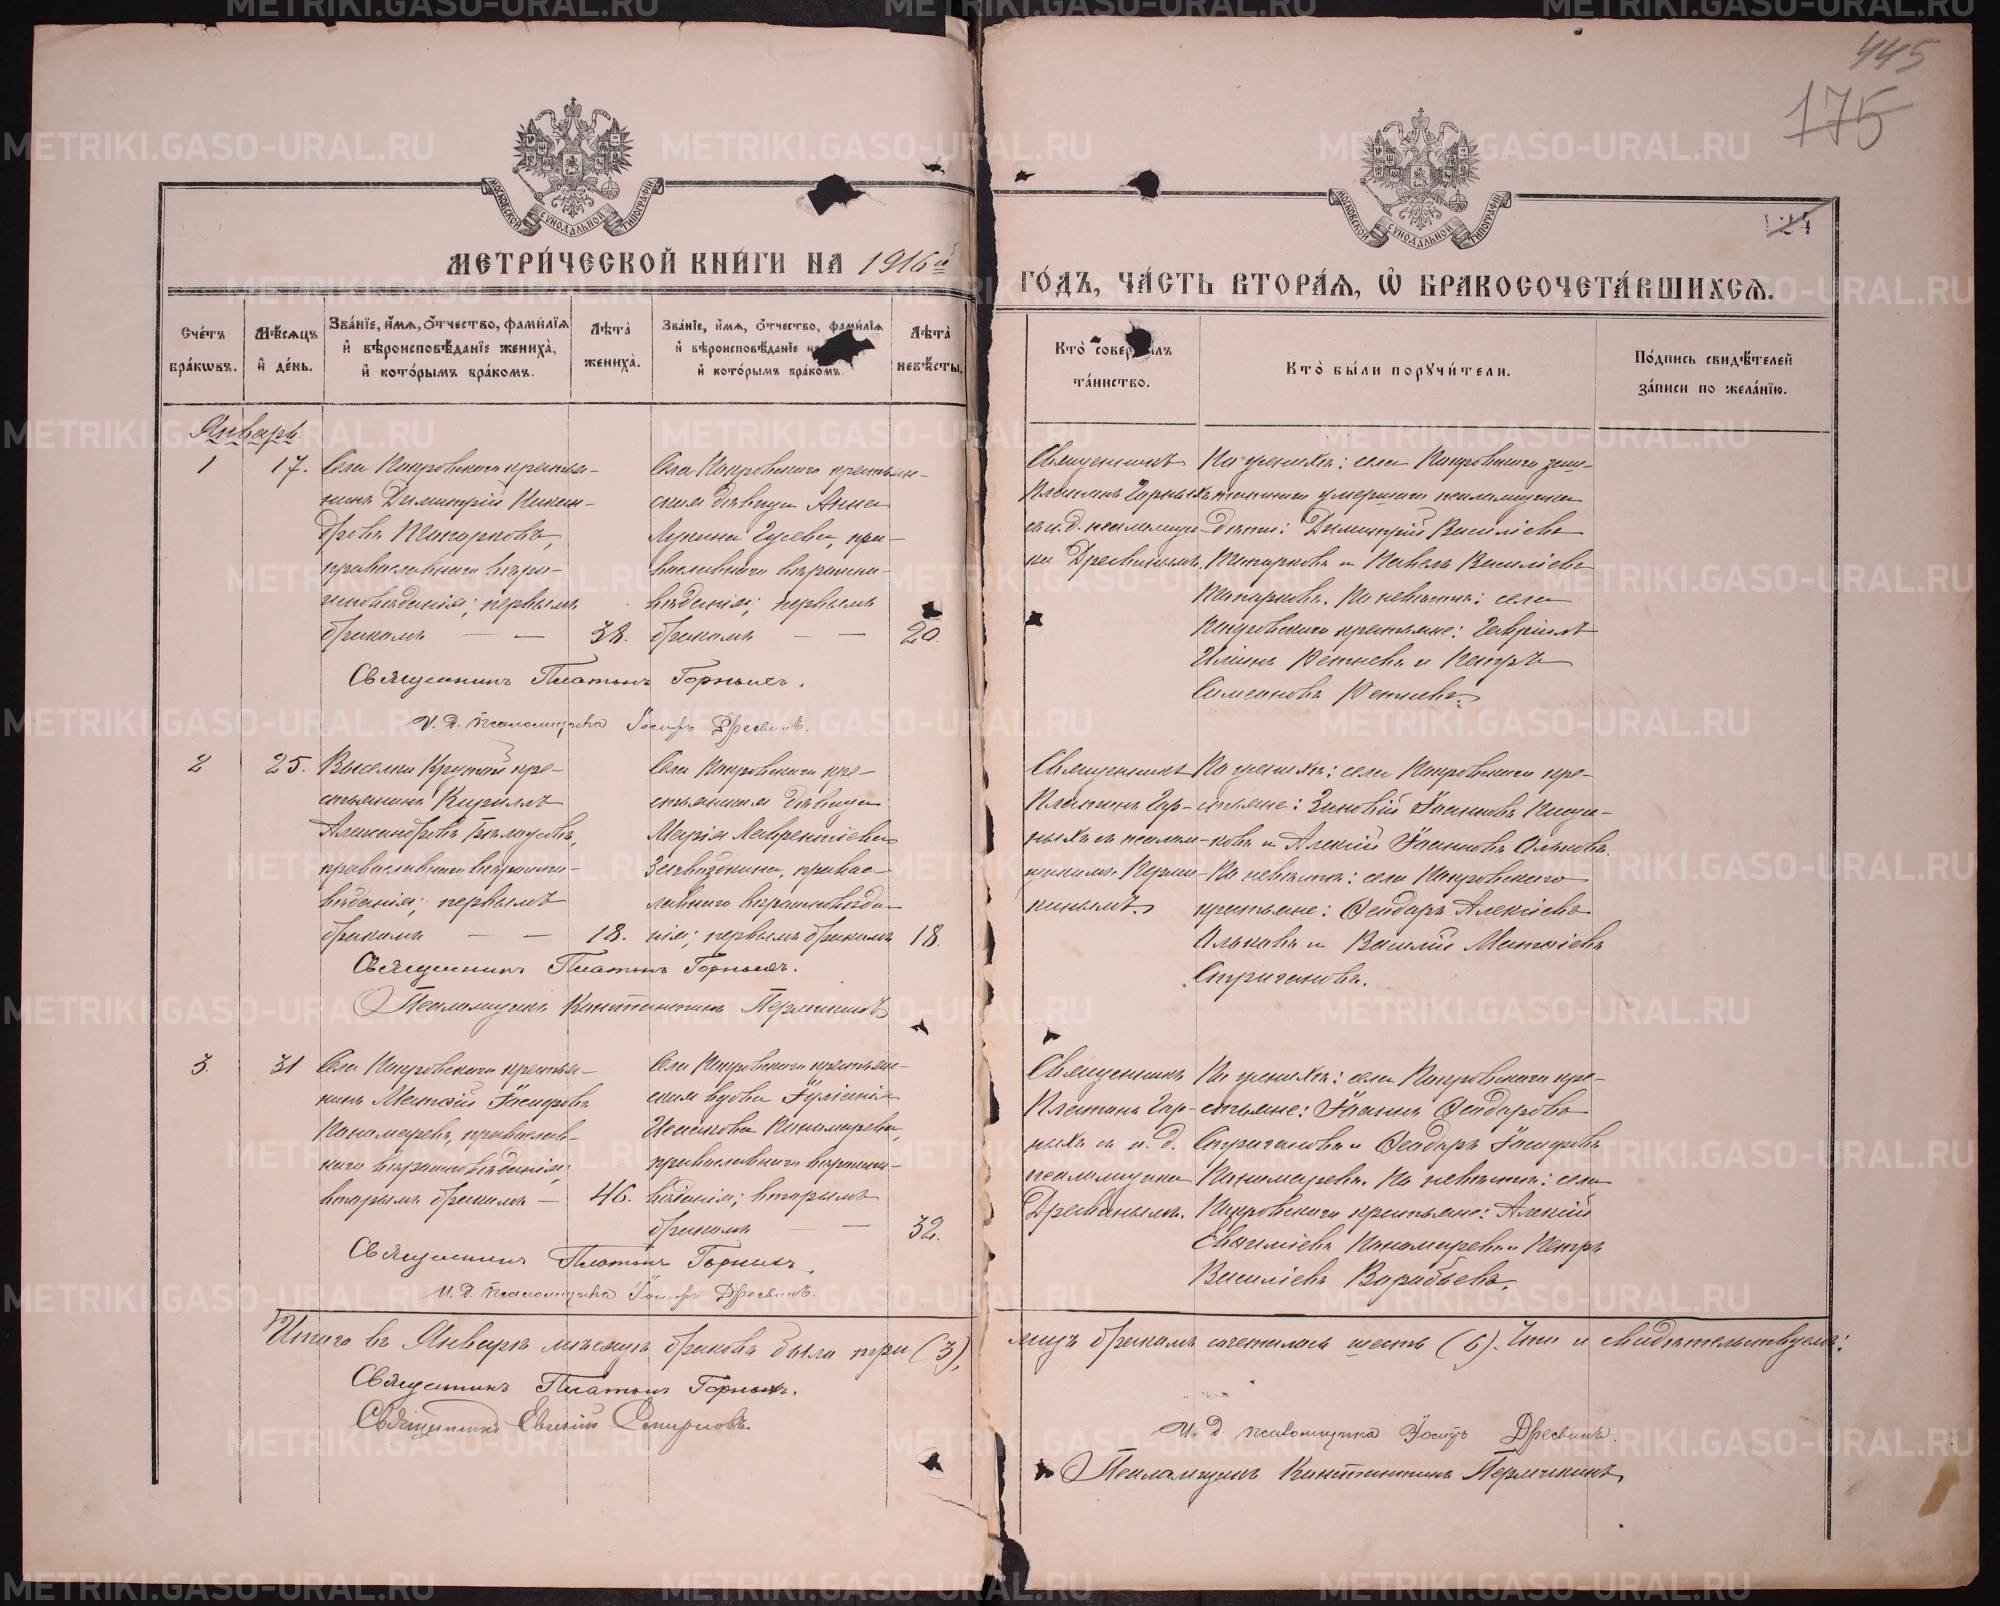 445
175
МЕТРИ́ЧЕСКОЙ КНИ́ГИ НА 1916й
ГО́ДЪ, ЧА́СТЬ ВТОРА́Я, Ѽ БРАКОСОЧЕТА́ВШИХСЯ.
Счётъ бра́кωвъ.
Мѣ́сяцъ и де́нь.
Зва́нїе, и́мя, ѻ́тчество, фами́лїя и вѣроисповѣ́данїе жениха̀, и кото́рымъ бра́комъ.
Лѣ́та жениха̀.
Зва́нїе, и́мя, ѻ́тчество, фами́лїя и вѣроисповѣ́данїе и кото́рымъ бра́комъ.
Лѣ́та невѣ́сты.
Кто̀ соверши́лъ та́инство.
Кто̀ бы́ли поручи́тели.
По́дпись свидѣ́телей за́писи по жела́нїю.
Январь
1
17.
Села Покровскаго крестья-
нинъ Димитрій Никан-
дровъ Топорковъ,
православнаго вѣро-
исповѣданія; первымъ
бракомъ — —
38.
Села Покровскаго крестьян-
ская дѣвица Анна
Лукина Гусева, пра-
вославнаго вѣроиспо-
вѣданія; первымъ
бракомъ — —
20.
Священникъ
Платонъ Горныхъ
съ и. д. псаломщи-
ка Дресвинымъ.
По женихѣ: села Покровскаго
умершаго псаломщика
дѣти: Димитрій Василіевъ
Топорковъ и Павелъ Василіевъ
Топорковъ. По невѣстѣ: села
Покровскаго крестьяне: Гавріилъ
Ильинъ Ретневъ и Петръ
Симеоновъ Ретневъ.
Священникъ Платонъ Горныхъ.
И. д. псаломщика Іосифъ Дресвинъ.
2
25.
Выселка Крутой кре-
стьянинъ Кириллъ
Александровъ Бѣлоусовъ,
православнаго вѣроиспо-
вѣданія; первымъ
бракомъ — —
18.
Села Покровскаго кре-
стьянская дѣвица
Марія Лаврентіева
Загвоздкина, правос-
лавнаго вѣроисповѣда-
нія; первымъ бракомъ
18.
Священникъ
Платонъ Гор-
ныхъ съ псалом-
щикомъ Перми-
кинымъ.
По женихѣ: села Покровскаго кре-
стьяне: Зиновій Іоанновъ
и Алексій Іоанновъ Ольковъ.
По невѣстѣ: села Покровскаго
крестьяне: Ѳеодоръ Алексіевъ
Ольковъ и Василій Матѳіевъ
Стригановъ.
Священникъ Платонъ Горныхъ.
Псаломщикъ Константинъ Пермикинъ
3.
31
Села Покровскаго крестья-
нинъ Матѳій Іосифовъ
Пономаревъ, православ-
наго вѣроисповѣданія;
вторымъ бракомъ —
46.
Села Покровскаго крестьян-
ская вдова Іуліанія
Исаакова Пономарева,
православнаго вѣроиспо-
вѣданія; вторымъ
бракомъ —
32.
Священникъ
Платонъ Гор-
ныхъ съ и. д.
псаломщика
Дресвинымъ.
По женихѣ: села Покровскаго кре-
стьяне: Іоаннъ Ѳеодоровъ
Стригановъ и Ѳеодоръ Іосифовъ
Пономаревъ. По невѣстѣ: села
Покровскаго крестьяне: Алексій
Евѳиміевъ Пономаревъ и Петръ
Василіевъ Воробьевъ.
Священникъ Платонъ Горныхъ.
И. д. псаломщика Іосифъ Дресвинъ.
Итого въ Январѣ мѣсяцѣ браковъ было три (3),
лицъ бракомъ сочеталось шесть (6). Что и свидѣтельствуемъ:
Священникъ Платонъ Горныхъ.
Священникъ Евгеній Смирновъ.
И. д. псаломщика Іосифъ Дресвинъ.
Псаломщикъ Константинъ Пермикинъ,
METRIKI.GASO-URAL.RU